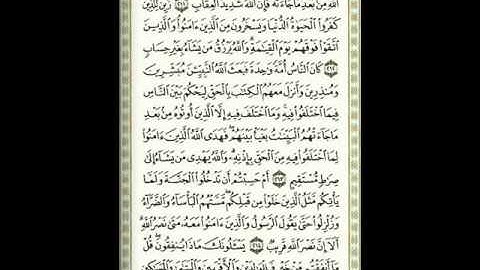 ٱللَّهِ مِنۢ بَعۡدِ مَا جَآءَتۡهُ فَإِنَّ ٱللَّهَ شَدِيدُ ٱلۡعِقَابِ ٢١١ زُيِّنَ لِلَّذِينَ
كَفَرُواْ ٱلۡحَيَوٰةُ ٱلدُّنۡيَا وَيَسۡخَرُونَ مِنَ ٱلَّذِينَ ءَامَنُواْۘ وَٱلَّذِينَ
ٱتَّقَوۡاْ فَوۡقَهُمۡ يَوۡمَ ٱلۡقِيَٰمَةِۗ وَٱللَّهُ يَرۡزُقُ مَن يَشَآءُ بِغَيۡرِ حِسَابٖ
٢١٢ كَانَ ٱلنَّاسُ أُمَّةٗ وَٰحِدَةٗ فَبَعَثَ ٱللَّهُ ٱلنَّبِيِّـۧنَ مُبَشِّرِينَ
وَمُنذِرِينَ وَأَنزَلَ مَعَهُمُ ٱلۡكِتَٰبَ بِٱلۡحَقِّ لِيَحۡكُمَ بَيۡنَ ٱلنَّاسِ
فِيمَا ٱخۡتَلَفُواْ فِيهِۚ وَمَا ٱخۡتَلَفَ فِيهِ إِلَّا ٱلَّذِينَ أُوتُوهُ مِنۢ بَعۡدِ
مَا جَآءَتۡهُمُ ٱلۡبَيِّنَٰتُ بَغۡيَۢا بَيۡنَهُمۡۖ فَهَدَى ٱللَّهُ ٱلَّذِينَ ءَامَنُواْ
لِمَا ٱخۡتَلَفُواْ فِيهِ مِنَ ٱلۡحَقِّ بِإِذۡنِهِۦۗ وَٱللَّهُ يَهۡدِي مَن يَشَآءُ إِلَىٰ
صِرَٰطٖ مُّسۡتَقِيمٍ ٢١٣ أَمۡ حَسِبۡتُمۡ أَن تَدۡخُلُواْ ٱلۡجَنَّةَ وَلَمَّا
يَأۡتِكُم مَّثَلُ ٱلَّذِينَ خَلَوۡاْ مِن قَبۡلِكُمۖ مَّسَّتۡهُمُ ٱلۡبَأۡسَآءُ وَٱلضَّرَّآءُ
وَزُلۡزِلُواْ حَتَّىٰ يَقُولَ ٱلرَّسُولُ وَٱلَّذِينَ ءَامَنُواْ مَعَهُۥ مَتَىٰ نَصۡرُ ٱللَّهِۗ
أَلَآ إِنَّ نَصۡرَ ٱللَّهِ قَرِيبٞ ٢١٤ يَسۡـَٔلُونَكَ مَاذَا يُنفِقُونَۖ قُلۡ
مَآ أَنفَقۡتُم مِّنۡ خَيۡرٖ فَلِلۡوَٰلِدَيۡنِ وَٱلۡأَقۡرَبِينَ وَٱلۡيَتَٰمَىٰ وَٱلۡمَسَٰكِينِ